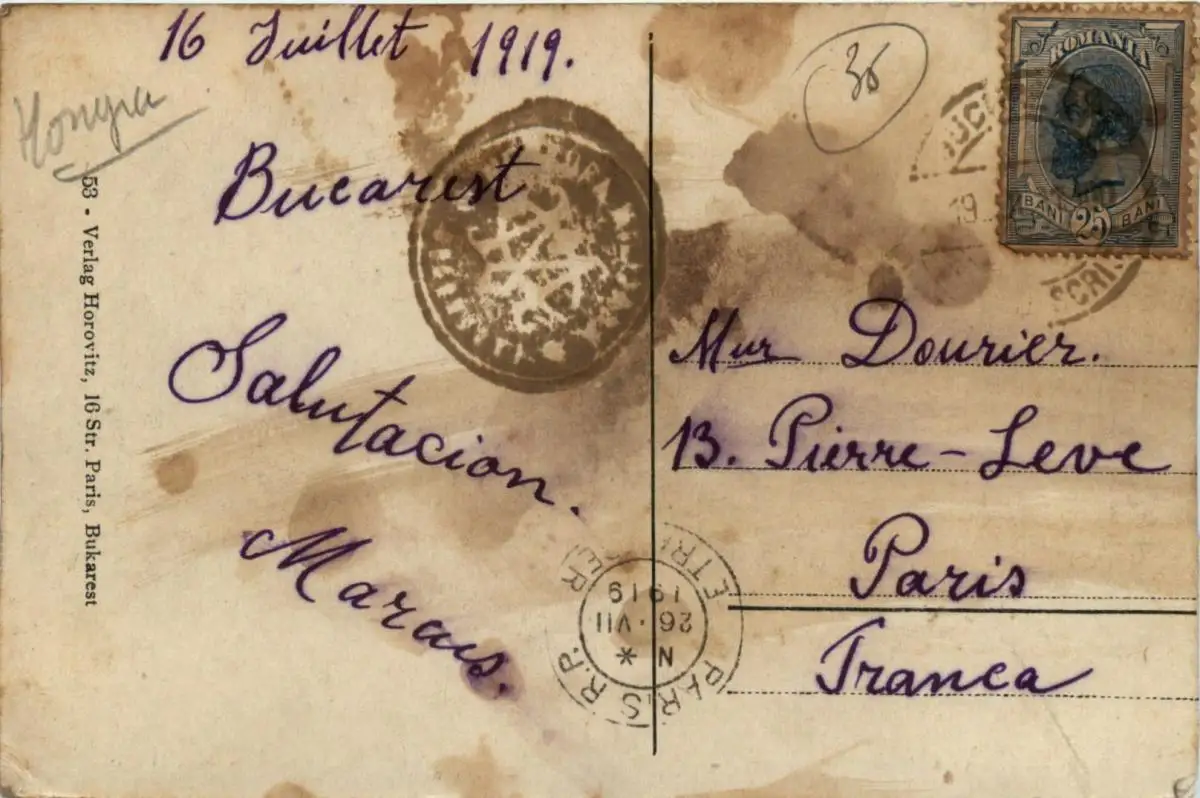 16 Juillet 1919.
Bucarest
Salutacion.
Maraus.
53 - Verlag Horovitz, 16 Str. Paris, Bukarest
35
ROMANIA
BANI 25 BANI
19
Mur Dourier.
13. Pierre-Leve
Paris
Franca
PARIS R.P.
ETRANGER
N *
26 · VII
1919